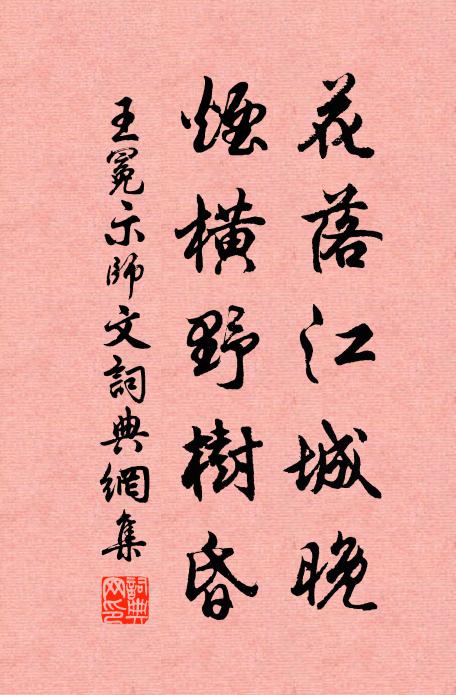 花落江城晚
煙橫野樹昏
王冕示師文詞典網集
詞典網印